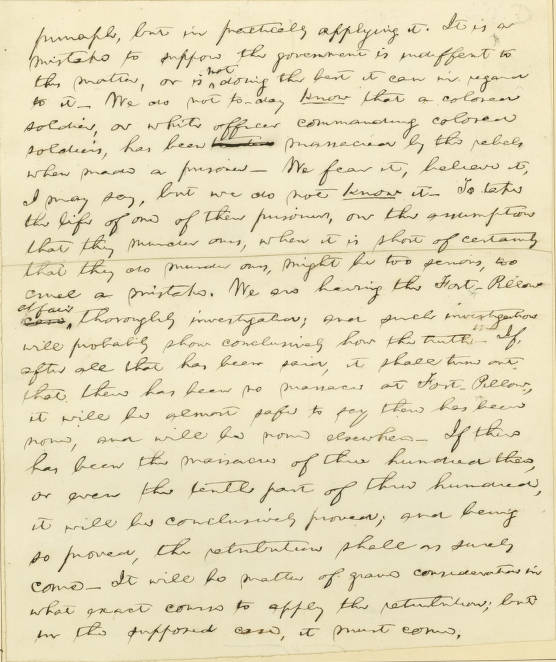 principle, but in practically applying it. It is a
mistake to suppose the government is indiffent to
this matter, or is not doing the best it can in regard
to it— We do not to-day know that a colored
soldier, or white officer commanding colored
soldiers, has been massacred by the rebels
when made a prisoner— We fear it, believe it,
I may say, but we do not know it— To take
the life of one of their prisoners, on the assumption
that they murder ours, when it is short of certainty
that they do murder ours, might be too serious, too
cruel a mistake. We are having the Fort-Pillow
affair
case, thoroughly investigated; and such investigation
will probably show conclusively how the truth is— If,
after all that has been said, it shall turn out
that there has been no massacre at Fort-Pillow,
it will be almost safe to say there has been
none, and will be none elsewhere— If there
has been the massacre of three hundred there,
or even the tenth part of three hundred,
it will be conclusively proved; and being
so proved, the retribution shall as surely
come— It will be matter of grave consideration in
what exact course to apply the retribution; but
in the supposed case, it must come.